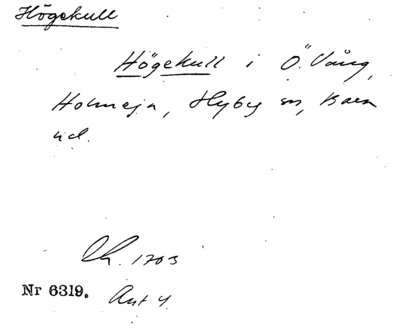 Högekull
Högekull i Ö. Vång,
Holmeja, Hyby sn, Bara
hd.
Lh. 1703
Nr 6319. Ant 4